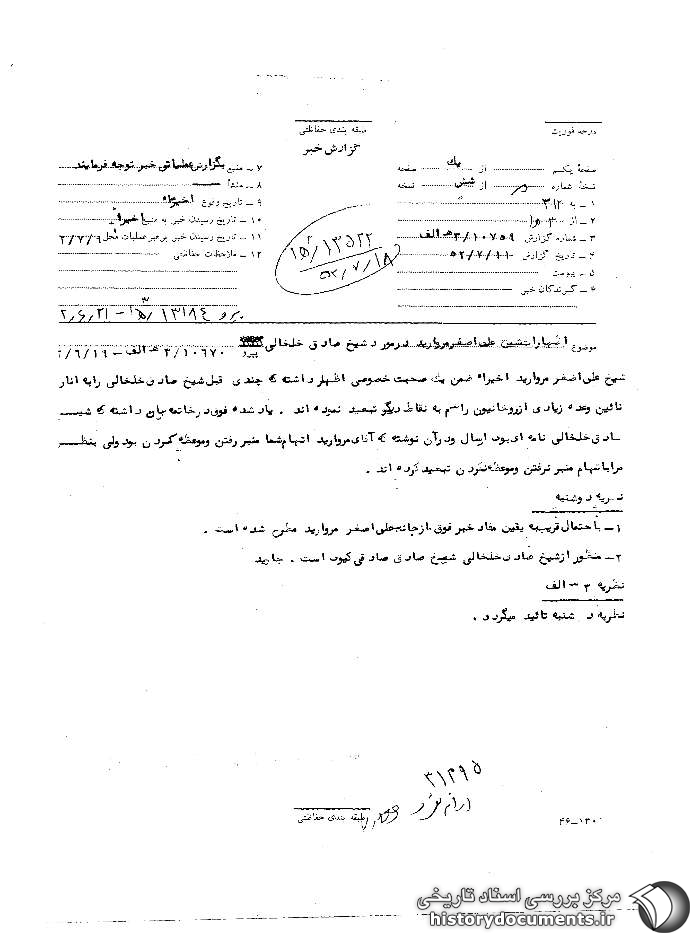 درجه فوریت
طبقه بندی حفاظتی
گزارش خبر
صفحهٔ یکم از یک صفحه
نسخهٔ شماره از شش نسخه
۱ – به ۳۱۲
۲ – از
۳ – شماره گزارش ۳/۱۰۷۵۹ ه‍ الف
۴ – تاریخ گزارش ۵۲/۷/۱۱
۵ – پیوست
۶ – گیرندگان خبر
۷ – منبع بگزارش عملیاتی خبر توجه فرمایند
۸ – منشأ
۹ – تاریخ وقوع اخیراً
۱۰ – تاریخ رسیدن خبر به منبع اخیراً
۱۱ – تاریخ رسیدن خبر برهبر عملیات محل ۲/۷/۹
۱۲ – ملاحظات حفاظتی
۱۵/۱۳۵۲۲
۵۲/۷/۱۸
پیرو ۱۳۱۸۴/۱۵ – ۲،۶،۲۱
موضوع اظهارات شیخ علی اصغر مروارید در مورد شیخ صادق خلخالی
پیرو ۳/۱۰۶۷۰ ه‍ الف – ۲/۶/۱۹
شیخ علی اصغر مروارید اخیراً ضمن یک صحبت خصوصی اظهار داشته که چندی قبل شیخ صادق خلخالی را به انار
نائین وعده زیادی از روحانیون را سم به نقاط دیگر تبعید نموده اند . یاد شده فوق در خاتمه بیان داشته که شیخ
صادق خلخالی نامه ای بود ارسال و در آن نوشته که آقای مروارید اتهام شما منبر رفتن و موعظه کردن بود ولی بنظر
مرا باتهام منبر نرفتن و موعظه نکردن تبعید کرده اند .
نظریه دوشنبه
۱ – با احتمال قریب به یقین مفاد خبر فوق از جانب علی اصغر مروارید مطرح شده است .
۲ – منظور از شیخ صادق خلخالی شیخ صادق صادقی گیوی است . جاوید
نظریه ۳ – الف
نظریه دوشنبه تائید میگردد .
۳۱۴۹۵
طبقه بندی حفاظتی
۴۶–۱۳۰
مرکز بررسی اسناد تاریخی
historydocuments.ir